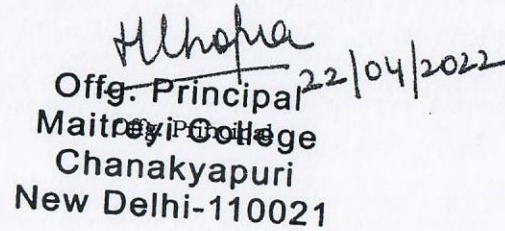 22/04/2022
Offg. Principal
Maitreyi College
Offg. Principal
Chanakyapuri
New Delhi-110021